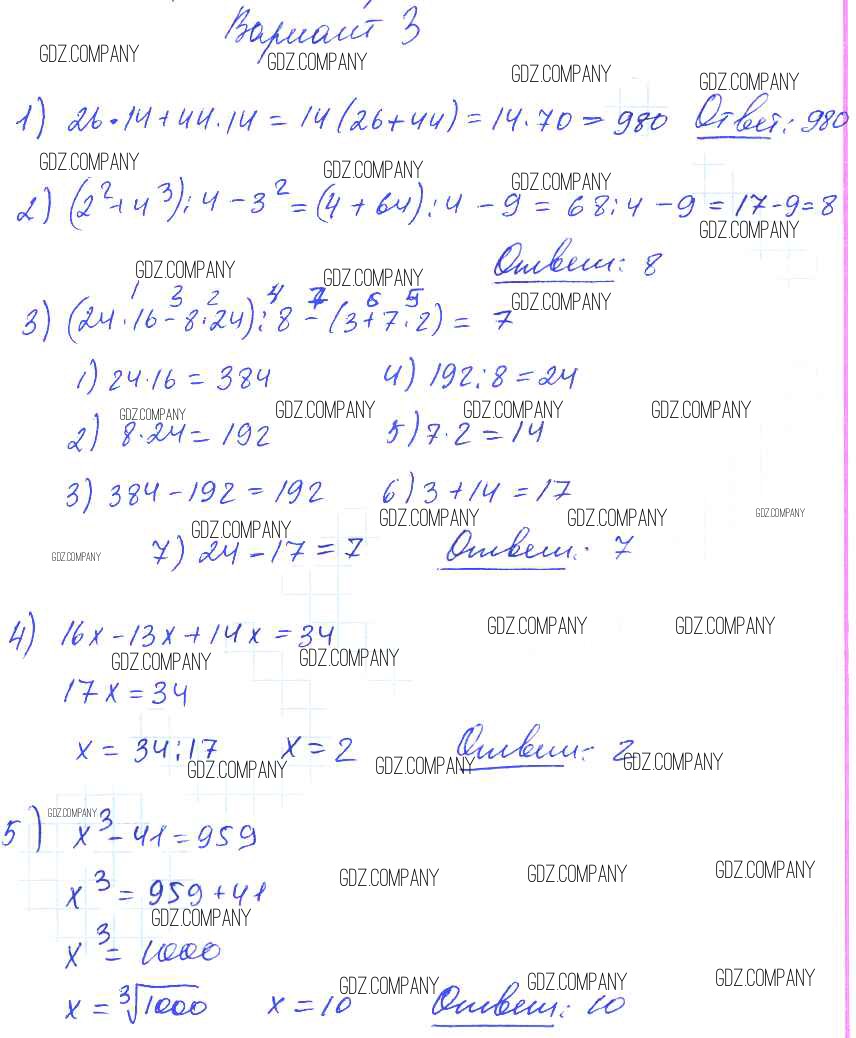 Вариант 3
GDZ.COMPANY GDZ.COMPANY GDZ.COMPANY GDZ.COMPANY
1) 26·14+44·14 = 14(26+44) = 14·70 = 980 Ответ: 980
GDZ.COMPANY GDZ.COMPANY GDZ.COMPANY
2) (2²+4³):4-3² = (4+64):4-9 = 68:4-9 = 17-9=8
GDZ.COMPANY
Ответ: 8
GDZ.COMPANY GDZ.COMPANY GDZ.COMPANY
1 3 2 4 7 6 5
3) (24·16-8·24):8-(3+7·2) = 7
1) 24·16 = 384 4) 192:8=24
GDZ.COMPANY GDZ.COMPANY GDZ.COMPANY GDZ.COMPANY
2) 8·24=192 5) 7·2=14
3) 384-192=192 6) 3+14=17
GDZ.COMPANY GDZ.COMPANY GDZ.COMPANY GDZ.COMPANY
GDZ.COMPANY 7) 24-17=7 Ответ: 7
4) 16x-13x+14x=34 GDZ.COMPANY GDZ.COMPANY
GDZ.COMPANY GDZ.COMPANY
17x=34
x=34:17 x=2 Ответ: 2
GDZ.COMPANY GDZ.COMPANY GDZ.COMPANY
GDZ.COMPANY
5) x³-41=959
x³=959+41 GDZ.COMPANY GDZ.COMPANY GDZ.COMPANY
GDZ.COMPANY
x³=1000
GDZ.COMPANY GDZ.COMPANY GDZ.COMPANY
x=∛1000 x=10 Ответ: 10